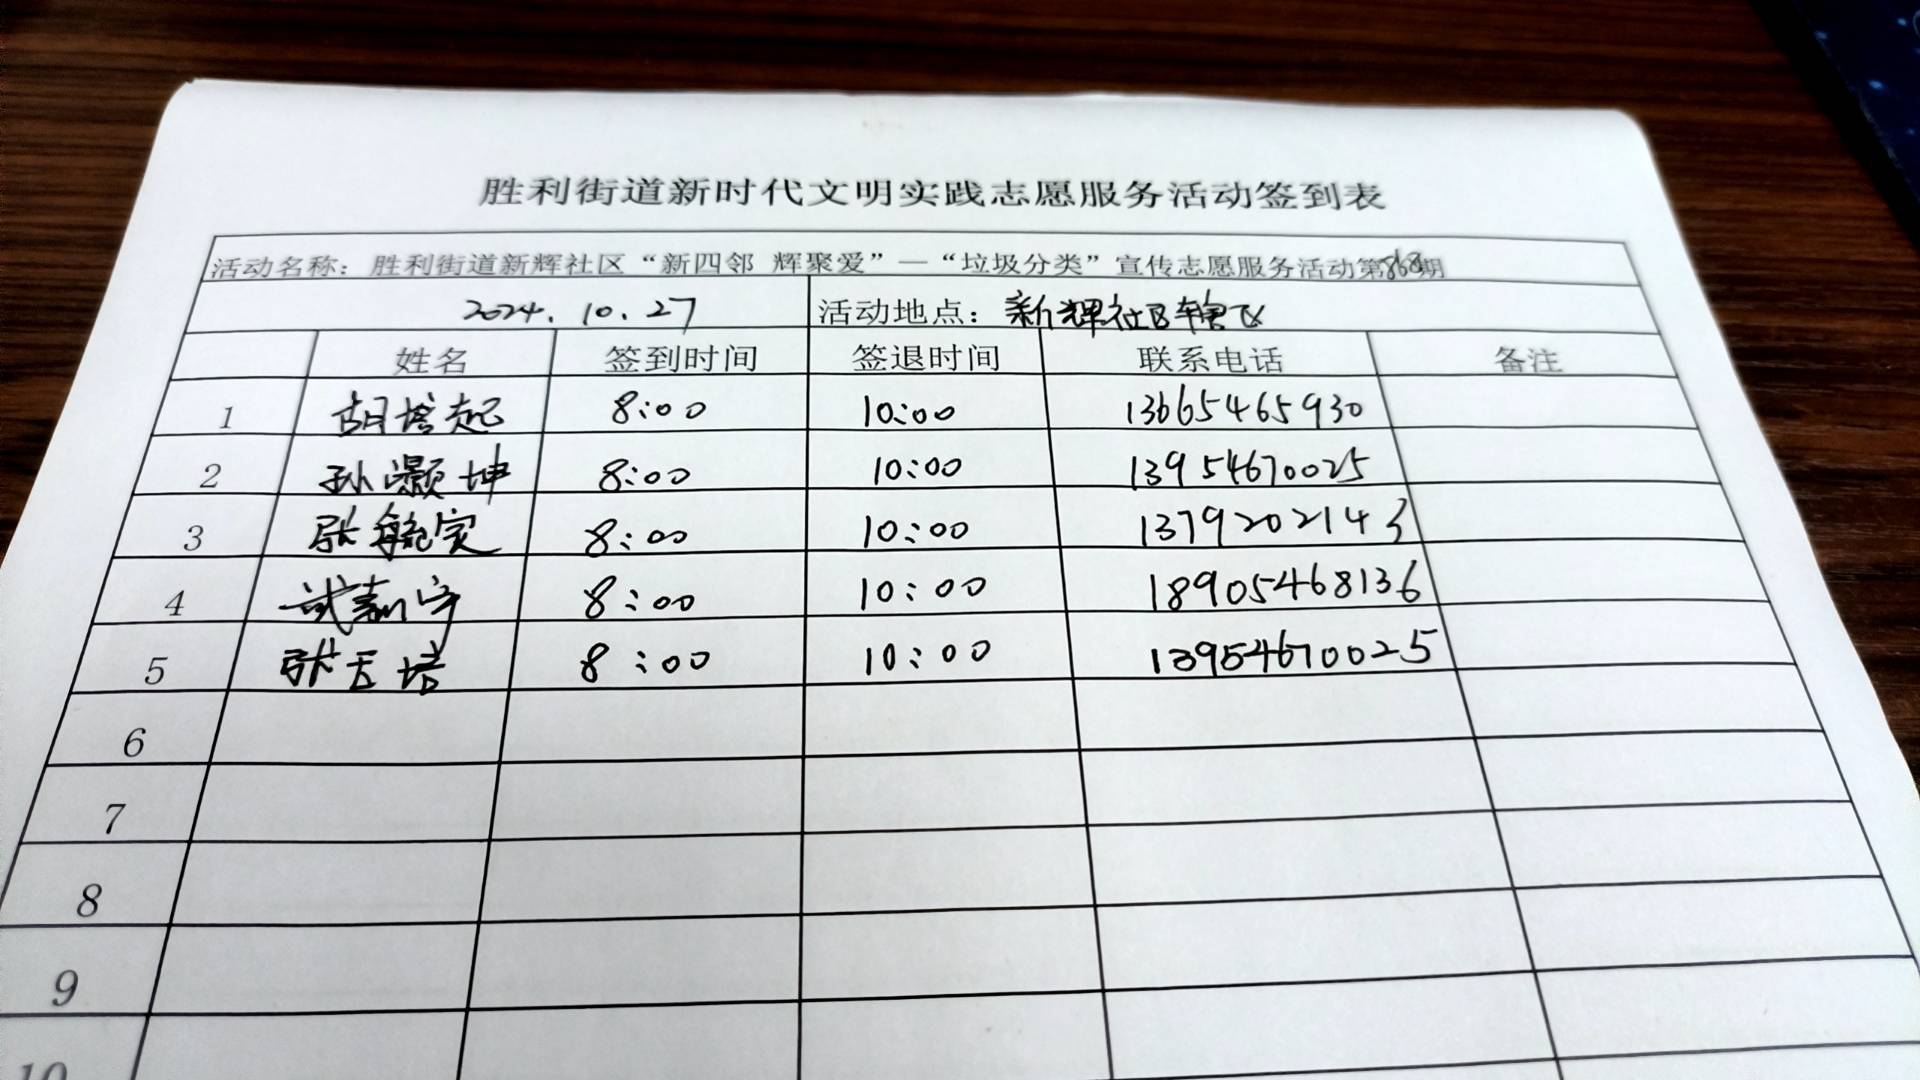 胜利街道新时代文明实践志愿服务活动签到表
活动名称：胜利街道新辉社区“新四邻 辉聚爱”—“垃圾分类”宣传志愿服务活动第868期
2024.10.27 活动地点：新辉社区辖区
姓名 签到时间 签退时间 联系电话 备注
1 胡培起 8:00 10:00 13665465930
2 孙灏坤 8:00 10:00 13954670025
3 张毓宸 8:00 10:00 13792021143
4 武嘉宇 8:00 10:00 18905468136
5 张玉培 8:00 10:00 13954670025
6
7
8
9
10